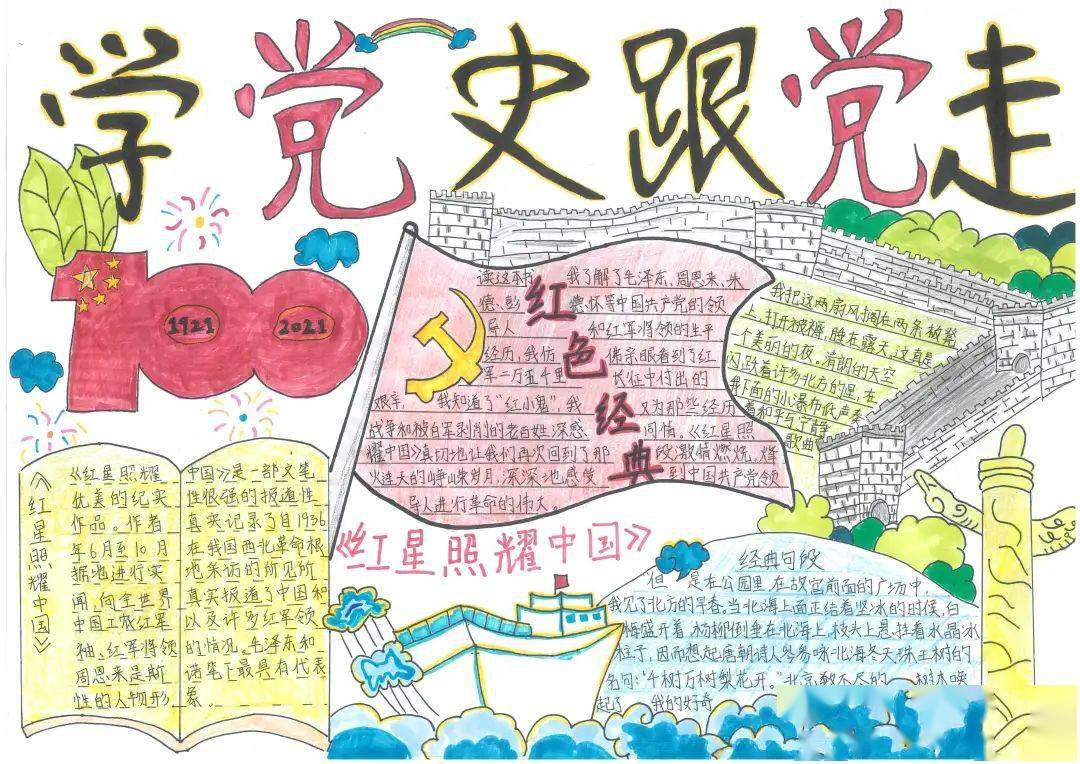 学党史跟党走
1921
2021
红色经典
读这本书 我了解了毛泽东、周恩来、朱
德、彭 德怀等中国共产党的领
导人 和红军将领的生平
经历,我仿 佛亲眼看到了红
军二万五千里 长征中付出的
艰辛, 我知道了“红小鬼”,我 又为那些经历
战争和被白军剥削的老百姓深感 同情。《红星照
耀中国》真切地让我们再次回到了那 段激情燃烧,烽
火连天的峥嵘岁月,深深地感受 到中国共产党领
导人进行革命的伟大。
我把这两扇风 在两条板凳
上,打开 睡在露天,这真是
个美丽的夜。清朗的天空
闪跃着许多北方的星,在
我下面的小瀑布低声奏
着和平与宁静
歌曲
《红星照耀中国》
《红星照耀中国》
《红星照耀
优美的纪实
作品。作者
年6月至10月
据地进行实
闻,向全世界
中国工农红军
袖、红军将领
周恩来是斯
性的人物形
中国》是一部文笔
性很强的报道性
真实记录了自1936
在我国西北革命根
地采访的所见所
真实报道了中国和
以及许多红军领
的情况。毛泽东和
诺笔下最具有代表
象。
经典句段
但 是在公园里,在故宫前面的广场中,
我见了北方的早春。当北海上面正结着坚冰的时候,白
梅盛开着 杨柳倒垂在北海上,枝头上悬挂着水晶冰
柱子,因而想起唐朝诗人岑参咏北海冬天珠玉树的
名句:“千树万树梨花开。”北京数不尽的 树木唤
起了 我的好奇